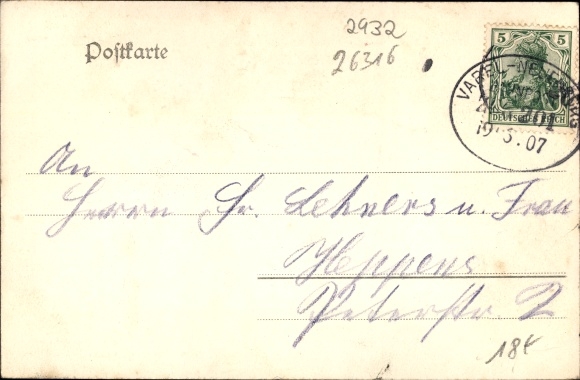 2932
26316
Postkarte
5 5
DEUTSCHES REICH
VAREL-NEUENBURG
ZUG 201
19.3.07
An
Herrn Fr. Lehners u. Frau
Heppens
Peterstr 2
18€